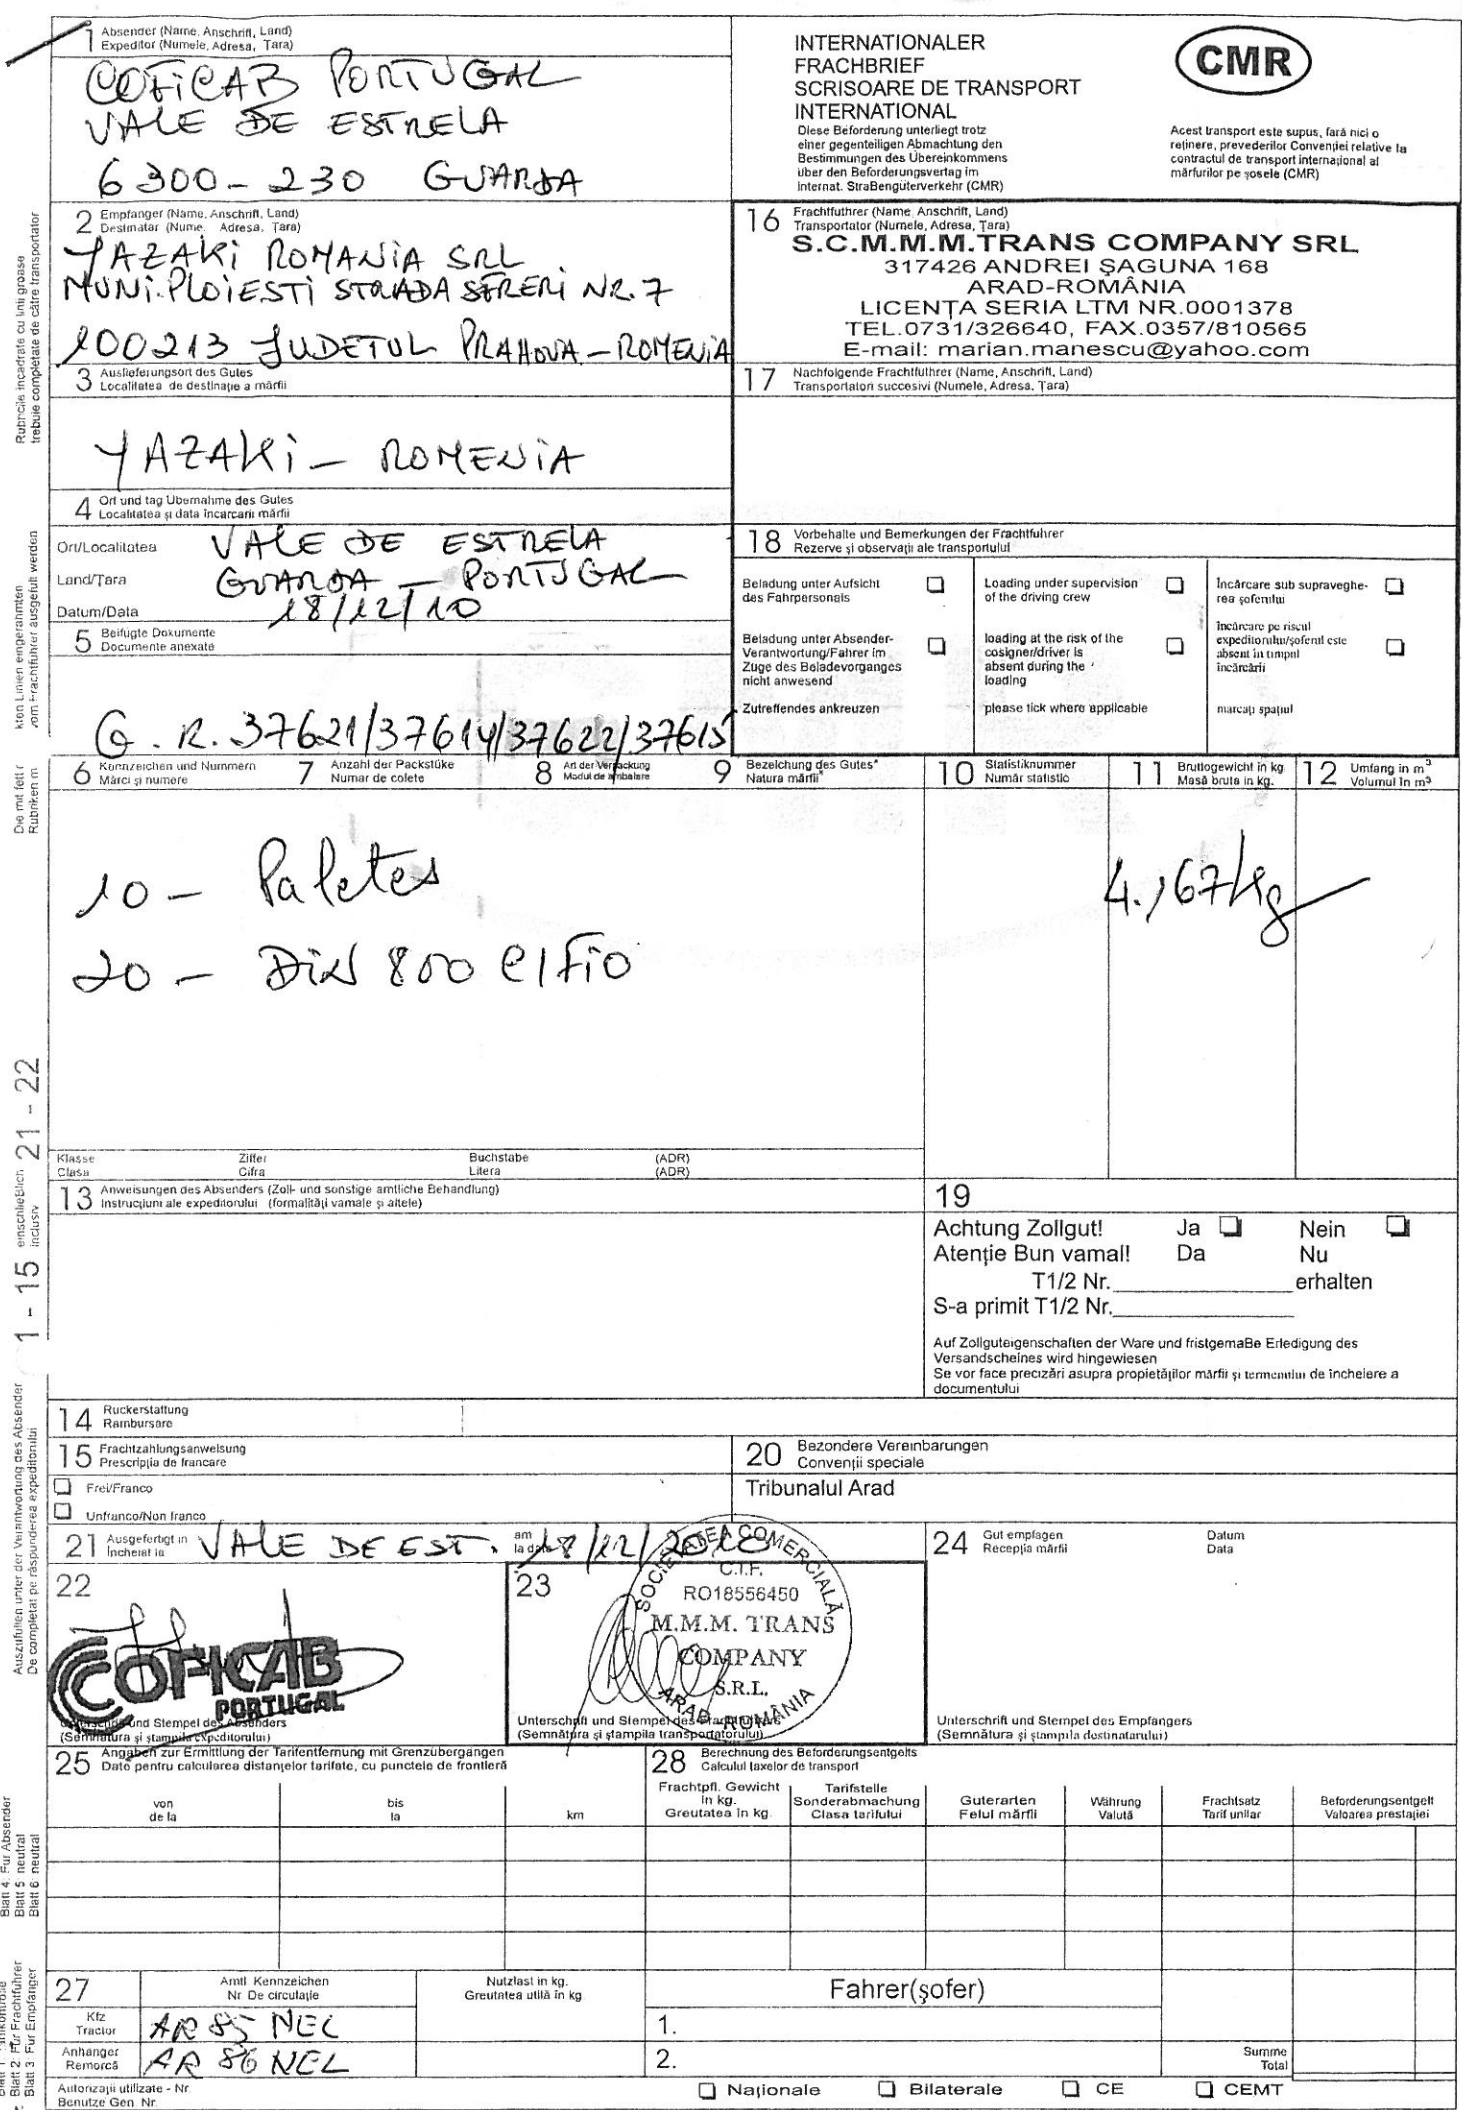 1 Absender (Name, Anschrift, Land)
Expeditor (Numele, Adresa, Tara)
COFICAB PORTUGAL
VALE DE ESTRELA
6300-230 GUARDA
INTERNATIONALER
FRACHBRIEF
SCRISOARE DE TRANSPORT
INTERNATIONAL
Diese Beforderung unterliegt trotz
einer gegenteiligen Abmachtung den
Bestimmungen des Übereinkommens
über den Beforderungsvertag im
Internat. StraBengüterverkehr (CMR)
CMR
Acest transport este supus, fară nici o
reţinere, prevederilor Convenţiei relative la
contractul de transport internaţional al
mărfurilor pe şosele (CMR)
2 Empfanger (Name, Anschrift, Land)
Destinatar (Nume, Adresa, Ţara)
YAZAKI ROMANIA SRL
MUNI.PLOIESTI STRADA SFRERI NR.7
100213 JUDETUL PRAHOVA - ROMENIA
16 Frachtfuthrer (Name, Anschrift, Land)
Transportator (Numele, Adresa, Ţara)
S.C.M.M.M.TRANS COMPANY SRL
317426 ANDREI ŞAGUNA 168
ARAD-ROMÂNIA
LICENŢA SERIA LTM NR.0001378
TEL.0731/326640, FAX.0357/810565
E-mail: marian.manescu@yahoo.com
3 Auslieferungsort des Gutes
Localitatea de destinaţie a mărfii
YAZAKI - ROMENIA
17 Nachfolgende Frachtfuthrer (Name, Anschrift, Land)
Transportatori succesivi (Numele, Adresa, Ţara)
4 Ort und tag Übernahme des Gutes
Localitatea şi data încarcarii mărfii
Ort/Localitatea VALE DE ESTRELA
Land/Ţara GUARDA - PORTUGAL
Datum/Data 18/12/10
5 Beifugte Dokumente
Documente anexate
G.R. 37621/37614/37622/37615
18 Vorbehalte und Bemerkungen der Frachtfuhrer
Rezerve şi observaţii ale transportului
Beladung unter Aufsicht
des Fahrpersonals
Loading under supervision
of the driving crew
Încărcare sub supraveghe-
rea şoferului
Beladung unter Absender-
Verantwortung/Fahrer im
Zuge des Beladevorganges
nicht anwesend
loading at the risk of the
cosigner/driver is
absent during the
loading
încărcare pe riscul
expeditorului/şoferul este
absent în timpul
încărcării
Zutreffendes ankreuzen
please tick where applicable
marcaţi spaţiul
6 Kennzeichen und Nummern
Mărci şi numere
7 Anzahl der Packstüke
Numar de colete
8 Art der Verpackung
Modul de ambalare
9 Bezelchung des Gutes*
Natura mărfii*
10 Statistiknummer
Număr statistic
11 Bruttogewicht in kg
Masă bruta în kg.
12 Umfang in m³
Volumul în m³
10 - Paletes
20 - DIN 800 C/FIO
4.167kg
Klasse Ziffer Buchstabe (ADR)
Clasa Cifra Litera (ADR)
13 Anweisungen des Absenders (Zoll- und sonstige amtliche Behandlung)
Instrucţiuni ale expeditorului (formalităţi vamale şi altele)
19
Achtung Zollgut! Ja Nein
Atenţie Bun vamal! Da Nu
T1/2 Nr. erhalten
S-a primit T1/2 Nr.
Auf Zollguteigenschaften der Ware und fristgemaBe Erledigung des
Versandscheines wird hingewiesen
Se vor face precizări asupra propietăţilor mărfii şi termenului de încheiere a
documentului
14 Ruckerstattung
Rambursare
15 Frachtzahlungsanwelsung
Prescripţia de francare
Frei/Franco
Unfranco/Non franco
20 Bezondere Vereinbarungen
Convenţii speciale
Tribunalul Arad
21 Ausgefertigt in
Incheiat la
VALE DE EST.
am
la data
18/12/2010
24 Gut empfagen
Recepţia mărfii
Datum
Data
22
COFICAB
PORTUGAL
Unterschrift und Stempel des Absenders
(Semnătura şi ştampila expeditorului)
23
SOCIETATEA COMERCIALĂ
C.I.F.
RO18556450
M.M.M. TRANS
COMPANY
S.R.L.
ARAD-ROMÂNIA
Unterschrift und Stempel des Frachtfuhrers
(Semnătura şi ştampila transportatorului)
Unterschrift und Stempel des Empfangers
(Semnătura şi ştampila destinatarului)
25 Angaben zur Ermittlung der Tarifentfernung mit Grenzubergangen
Date pentru calcularea distanţelor tarifate, cu punctele de frontieră
von
de la
bis
la
km
28 Berechnung des Beforderungsentgelts
Calculul taxelor de transport
Frachtpfl. Gewicht
in kg.
Greutatea în kg.
Tarifstelle
Sonderabmachung
Clasa tarifului
Guterarten
Felul mărfii
Währung
Valută
Frachtsatz
Tarif unitar
Beforderungsentgelt
Valoarea prestaţiei
27
Amtl Kennzeichen
Nr De circulaţie
Nutzlast in kg.
Greutatea utilă în kg
Fahrer(şofer)
Kfz
Tractor
AR 85 NEL
1.
Anhanger
Remorcă
AR 86 NEL
2.
Summe
Total
Autorizaţii utilizate - Nr
Benutze Gen. Nr.
Naţionale
Bilaterale
CE
CEMT
Rubricile încadrate cu linii groase
trebuie completate de către transportator
kten Linien eingerahmten
vom Frachtfuhrer ausgefult werden
Die mit fett r
Rubriken m
1 - 15 einschließlich 21 - 22
inclusiv
Auszufullen unter der Verantwortung des Absender
De completat pe răspunderea expeditorului
Blatt 4: Fur Absender
Blatt 5: neutral
Blatt 6: neutral
Blatt 2: Für Frachtfuhrer
Blatt 3: Fur Empfanger